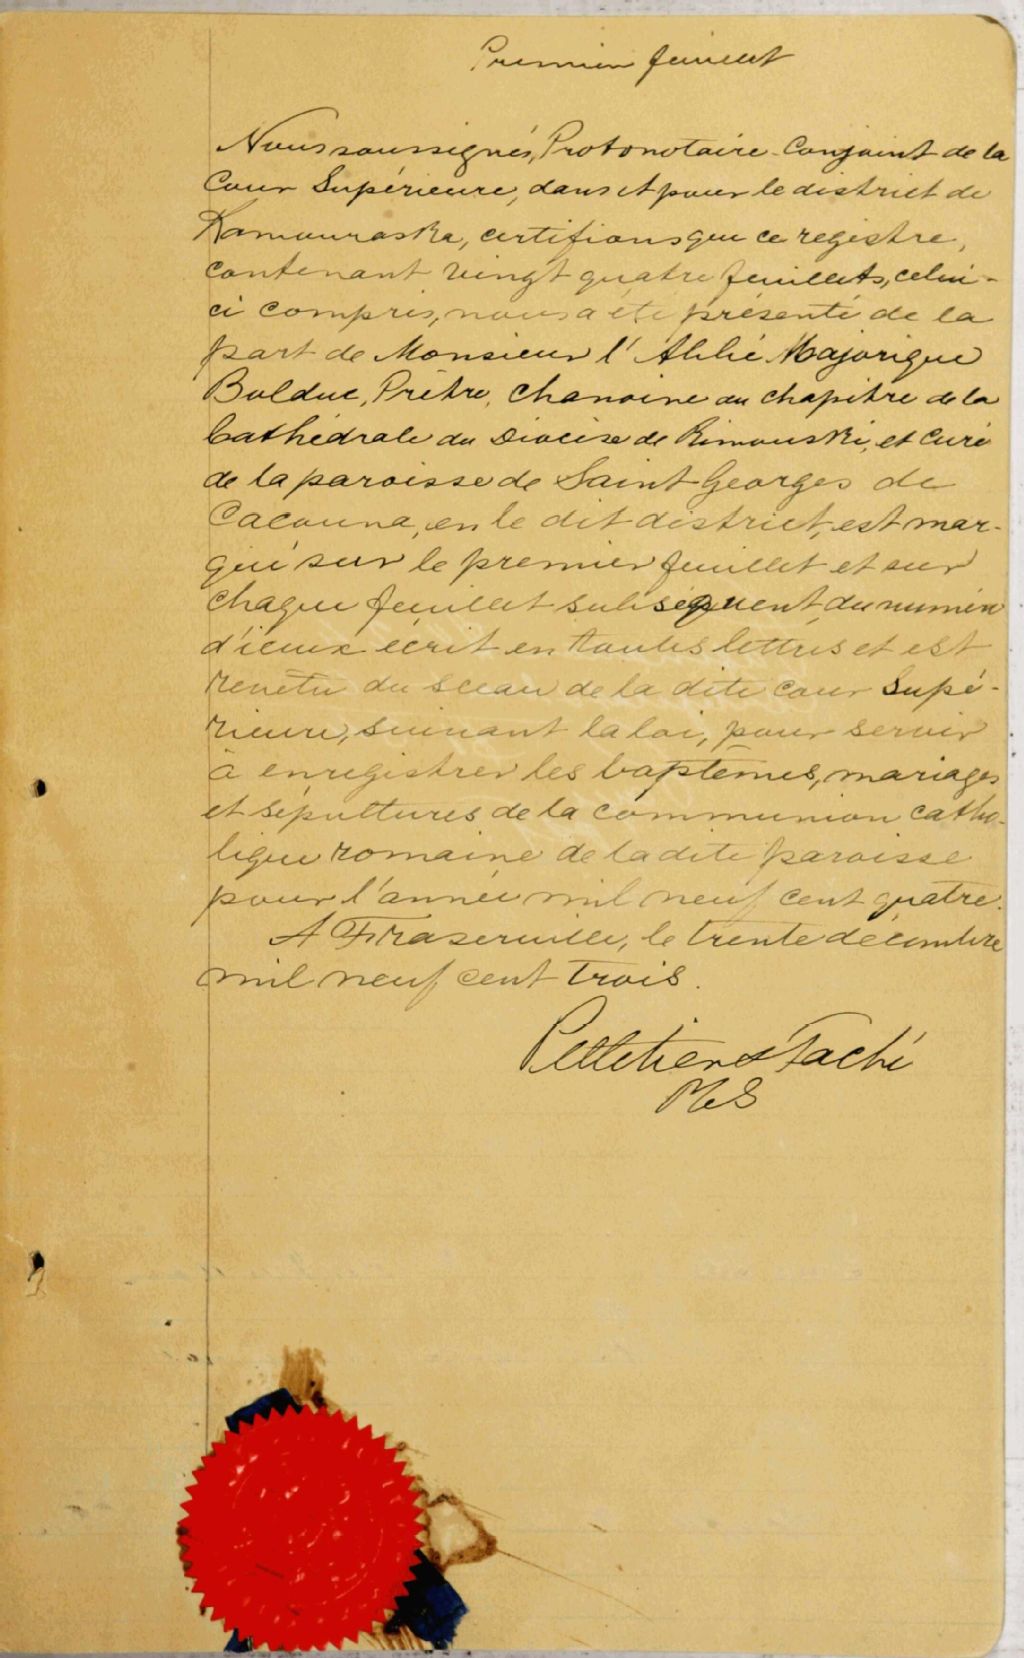 Premier feuillet
Nous soussignés, Protonotaire Conjoint de la
Cour Supérieure, dans et pour le district de
Kamouraska, certifions que ce registre,
contenant vingt quatre feuillets, celui-
ci compris, nous a été présenté de la
part de Monsieur l'Abbé Majorique
Bolduc, Prêtre, Chanoine au chapitre de la
Cathédrale du Diocèse de Rimouski, et Curé
de la paroisse de Saint Georges de
Cacouna, en le dit district, est mar-
qué sur le premier feuillet et sur
chaque feuillet subséquent du numéro
d'iceux écrit en toutes lettres et est
revêtu du sceau de la dite cour Supé-
rieure, suivant la loi, pour servir
à enregistrer les baptêmes, mariages
et sépultures de la communion catho-
lique romaine de la dite paroisse
pour l'année mil neuf cent quatre.
A Fraserville, le trente décembre
mil neuf cent trois.
Pelletier & Taché
PCS